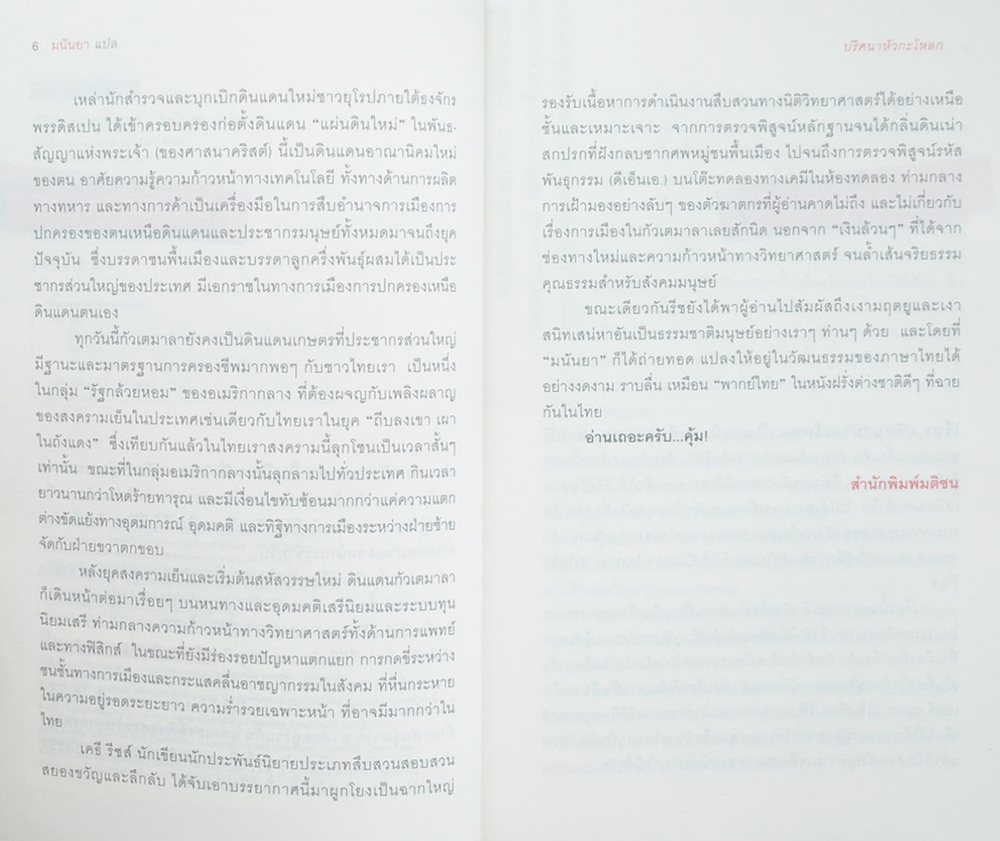 6 มนันยา แปล
เหล่านักสำรวจและบุกเบิกดินแดนใหม่ชาวยุโรปภายใต้ธงจักร
พรรดิสเปน ได้เข้าครอบครองก่อตั้งดินแดน "แผ่นดินใหม่" ในพันธ-
สัญญาแห่งพระเจ้า (ของศาสนาคริสต์) นี้เป็นดินแดนอาณานิคมใหม่
ของตน อาศัยความรู้ความก้าวหน้าทางเทคโนโลยี ทั้งทางด้านการผลิต
ทางทหาร และทางการค้าเป็นเครื่องมือในการสืบอำนาจการเมืองการ
ปกครองของตนเหนือดินแดนและประชากรมนุษย์ทั้งหมดมาจนถึงยุค
ปัจจุบัน ซึ่งบรรดาชนพื้นเมืองและบรรดาลูกครึ่งพันธุ์ผสมได้เป็นประ
ชากรส่วนใหญ่ของประเทศ มีเอกราชในทางการเมืองการปกครองเหนือ
ดินแดนตนเอง
ทุกวันนี้กัวเตมาลายังคงเป็นดินแดนเกษตรที่ประชากรส่วนใหญ่
มีฐานะและมาตรฐานการครองชีพมากพอๆ กับชาวไทยเรา เป็นหนึ่ง
ในกลุ่ม "รัฐกล้วยหอม" ของอเมริกากลาง ที่ต้องผจญกับเพลิงผลาญ
ของสงครามเย็นในประเทศเช่นเดียวกับไทยเราในยุค "ถีบลงเขา เผา
ในถังแดง" ซึ่งเทียบกันแล้วในไทยเราสงครามนี้ลุกโชนเป็นเวลาสั้นๆ
เท่านั้น ขณะที่ในกลุ่มอเมริกากลางนั้นลุกลามไปทั่วประเทศ กินเวลา
ยาวนานกว่าโหดร้ายทารุณ และมีเงื่อนไขทับซ้อนมากกว่าแค่ความแตก
ต่างขัดแย้งทางอุดมการณ์ อุดมคติ และทิฐิทางการเมืองระหว่างฝ่ายซ้าย
จัดกับฝ่ายขวาตกขอบ
หลังยุคสงครามเย็นและเริ่มต้นสหัสวรรษใหม่ ดินแดนกัวเตมาลา
ก็เดินหน้าต่อมาเรื่อยๆ บนหนทางและอุดมคติเสรีนิยมและระบบทุน
นิยมเสรี ท่ามกลางความก้าวหน้าทางวิทยาศาสตร์ทั้งด้านการแพทย์
และทางฟิสิกส์ ในขณะที่ยังมีร่องรอยปัญหาแตกแยก การกดขี่ระหว่าง
ชนชั้นทางการเมืองและกระแสคลื่นอาชญากรรมในสังคม ที่หื่นกระหาย
ในความอยู่รอดระยะยาว ความร่ำรวยเฉพาะหน้า ที่อาจมีมากกว่าใน
ไทย
เคธี รีชส์ นักเขียนนักประพันธ์นิยายประเภทสืบสวนสอบสวน
สยองขวัญและลึกลับ ได้จับเอาบรรยากาศนี้มาผูกโยงเป็นฉากใหญ่
ปริศนาหัวกะโหลก
รองรับเนื้อหาการดำเนินงานสืบสวนทางนิติวิทยาศาสตร์ได้อย่างเหนือ
ชั้นและเหมาะเจาะ จากการตรวจพิสูจน์หลักฐานจนได้กลิ่นดินเน่า
สกปรกที่ฝังกลบซากศพหมู่ชนพื้นเมือง ไปจนถึงการตรวจพิสูจน์รหัส
พันธุกรรม (ดีเอ็นเอ.) บนโต๊ะทดลองทางเคมีในห้องทดลอง ท่ามกลาง
การเฝ้ามองอย่างลับๆ ของตัวฆาตกรที่ผู้อ่านคาดไม่ถึง และไม่เกี่ยวกับ
เรื่องการเมืองในกัวเตมาลาเลยสักนิด นอกจาก "เงินล้วนๆ" ที่ได้จาก
ช่องทางใหม่และความก้าวหน้าทางวิทยาศาสตร์ จนล้ำเส้นจริยธรรม
คุณธรรมสำหรับสังคมมนุษย์
ขณะเดียวกันรีชยังได้พาผู้อ่านไปสัมผัสถึงเงามฤตยูและเงา
สนิทเสน่หาอันเป็นธรรมชาติมนุษย์อย่างเราๆ ท่านๆ ด้วย และโดยที่
"มนันยา" ก็ได้ถ่ายทอด แปลงให้อยู่ในวัฒนธรรมของภาษาไทยได้
อย่างงดงาม ราบลื่น เหมือน "พากย์ไทย" ในหนังฝรั่งต่างชาติดีๆ ที่ฉาย
กันในไทย
อ่านเถอะครับ...คุ้ม!
สำนักพิมพ์มติชน